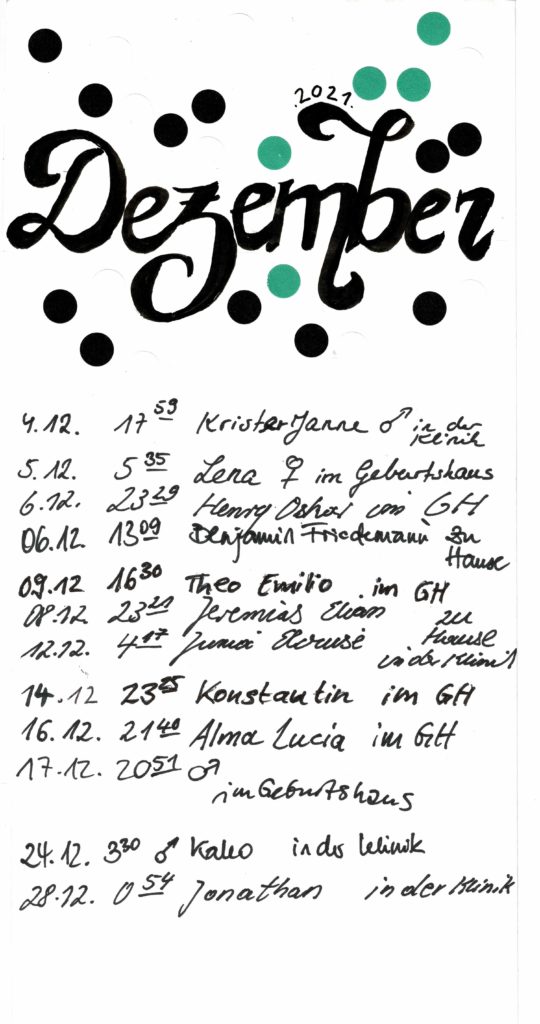 .2021.
Dezember
4.12. 17 59 Krister Janne ♂ in der Klinik
5.12. 5 35 Lena ♀ im Geburtshaus
6.12. 23 29 Henry Oskar im GH
06.12. 13 09 Benjamin Friedemann zu Hause
09.12 16 30 Theo Emilio im GH
08.12. 23 21 Jeremias zu Hause
12.12. 4 17 in der Klinik
14.12 23 25 Konstantin im GH
16.12. 21 40 Alma Lucia im GH
17.12. 20 51 ♂
im Geburtshaus
24.12. 3 30 ♂ Kaleo in der Klinik
28.12. 0 54 Jonathan in der Klinik